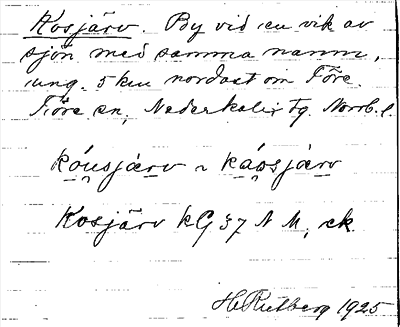 Kosjärv. By vid en vik av
sjön med samma namn,
ung. 5 km nordost om Töre.
Töre sn, Nederkalix tg. Norrb. l.
kóusjärv ~ káosjärv
Kosjärv kG 37 N M, ek.
H Rutberg 1925